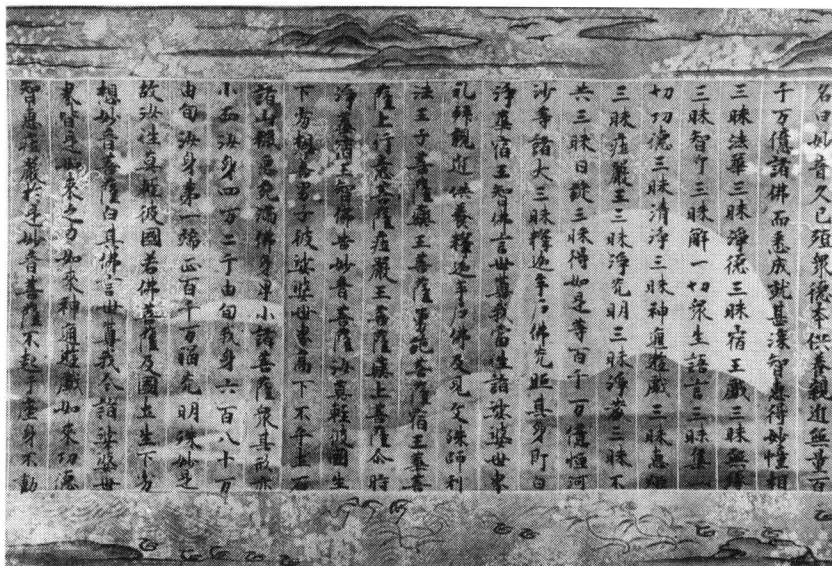 名曰妙音久已殖衆德本供養親近無量百
千万億諸佛而悉成就甚深智惠得妙幢相
三昧法華三昧淨德三昧宿王戲三昧無緣
三昧智印三昧解一切衆生語言三昧集一
切功德三昧清淨三昧神通遊戲三昧惠炬
三昧莊嚴王三昧淨光明三昧淨藏三昧不
共三昧日旋三昧得如是等百千万億恒河
沙等諸大三昧釋迦牟尼佛光照其身即白
淨華宿王智佛言世尊我當往詣娑婆世界
礼拜親近供養釋迦牟尼佛及見文殊師利
法王子菩薩藥王菩薩勇施菩薩宿王華菩
薩上行意菩薩莊嚴王菩薩藥上菩薩尒時
淨華宿王智佛告妙音菩薩汝莫輕彼國生
下劣想善男子彼娑婆世界高下不平土石
諸山穢惡充滿佛身卑小諸菩薩衆其形亦
小而汝身四万二千由旬我身六百八十万
由旬汝身第一端正百千万福光明殊妙是
故汝往莫輕彼國若佛菩薩及國土生下劣
想妙音菩薩白其佛言世尊我今詣娑婆世
界皆是如來之力如來神通遊戲如來功德
智惠莊嚴於是妙音菩薩不起于座身不動